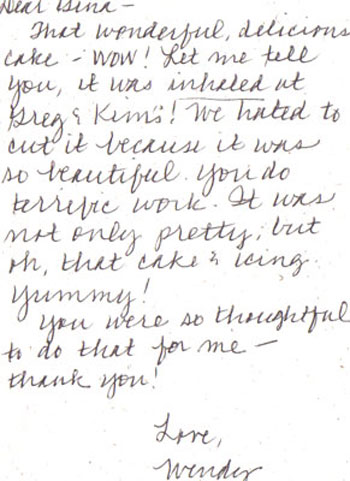 Dear Gina -
That wonderful, delicious
cake - WOW! Let me tell
you, it was inhaled at
Greg & Kim's! We hated to
cut it because it was
so beautiful. You do
terrific work. It was
not only pretty, but
oh, that cake & icing.
Yummy!
You were so thoughtful
to do that for me -
thank you!
Love,
Wendy